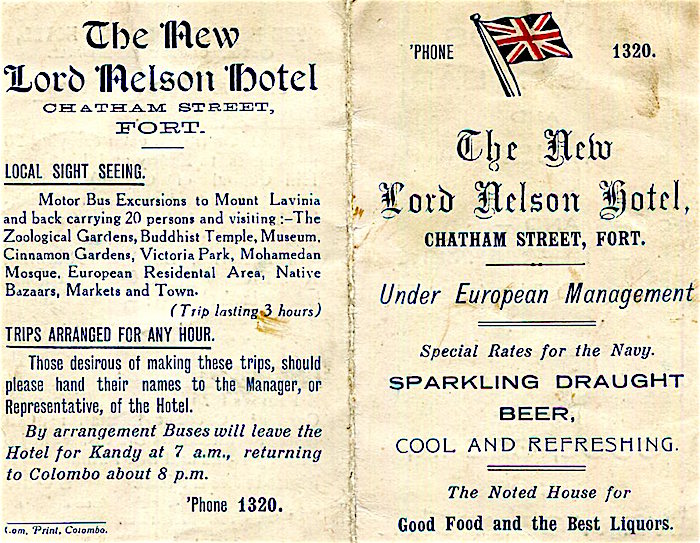 The New
Lord Nelson Hotel
CHATHAM STREET,
FORT.
LOCAL SIGHT SEEING.
Motor Bus Excursions to Mount Lavinia
and back carrying 20 persons and visiting :–The
Zoological Gardens, Buddhist Temple, Museum,
Cinnamon Gardens, Victoria Park, Mohamedan
Mosque, European Residental Area, Native
Bazaars, Markets and Town.
(Trip lasting 3 hours)
TRIPS ARRANGED FOR ANY HOUR.
Those desirous of making these trips, should
please hand their names to the Manager, or
Representative, of the Hotel.
By arrangement Buses will leave the
Hotel for Kandy at 7 a.m., returning
to Colombo about 8 p.m.
'Phone 1320.
Com, Print, Colombo.
'PHONE 1320.
The New
Lord Nelson Hotel,
CHATHAM STREET, FORT.
Under European Management
Special Rates for the Navy.
SPARKLING DRAUGHT
BEER,
COOL AND REFRESHING.
The Noted House for
Good Food and the Best Liquors.